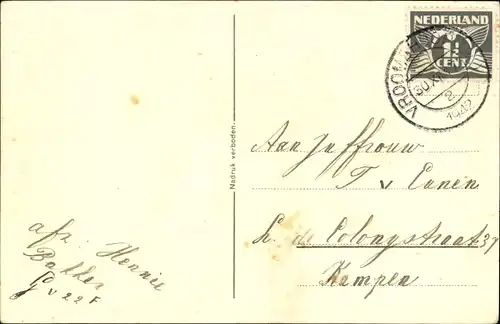 NEDERLAND
1½
CENT
VROOM
30 XII
2
1942
Nadruk verboden.
Aan Juffrouw
T v Eunen
Colongstraat 37
Kampen
afz. Hennie
Bakker
v 22 F